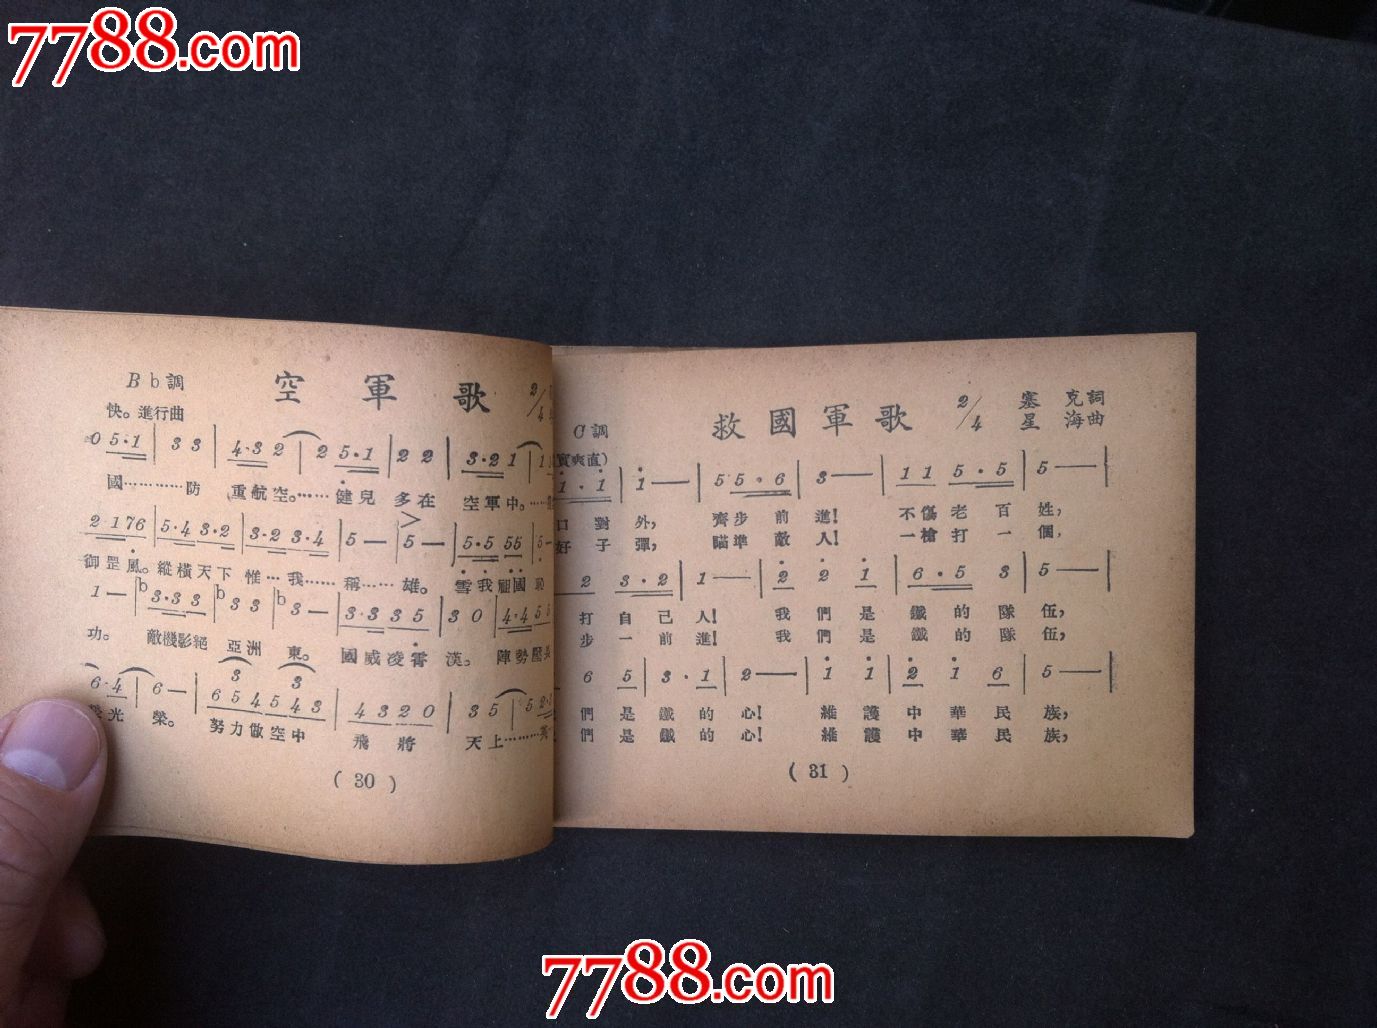 7788.com
空軍歌
Bb調
2/4
快。進行曲
0 5·1 | 3 3 | 4·3 2 | 2 5·1 | 2 2 | 3·2 1 | 1
國…………防 重航空。……健兒 多在 空軍中。
2 1 7 6 | 5·4 3·2 | 3·2 3·4 | 5 — | 5 — | 5·5 5 5 | 5 —
御罡風。縱橫天下 惟…我……稱……雄。雪我祖國恥
1 — | b3·3 3 3 | b3 3 | b3 — | 3·3 3 5 | 3 0 | 4·4 5 5
功。 敵機影絕 亞洲 東。 國威凌霄 漢。陣勢壓
6·4 | 6 — | 6 5 4 5 4 3 | 4 3 2 0 | 3 5 | 5 2
光 榮。 努力做空中 飛將 天上………
( 30 )
救國軍歌
2/4
塞克詞
星海曲
C調
1·1 | 1 — | 5 5·6 | 3 — | 1 1 5·5 | 5 —
口對外, 齊步前進! 不傷老百姓,
好子彈, 瞄準敵人! 一槍打一個,
2 3·2 | 1 — | 2 2 1 | 6·5 3 | 5 —
打自己人! 我們是鐵的隊伍,
步一前進! 我們是鐵的隊伍,
6 5 | 3·1 | 2 — | 1 1 | 2 1 6 | 5 —
們是鐵的心! 維護中華民族,
們是鐵的心! 維護中華民族,
( 31 )
7788.com